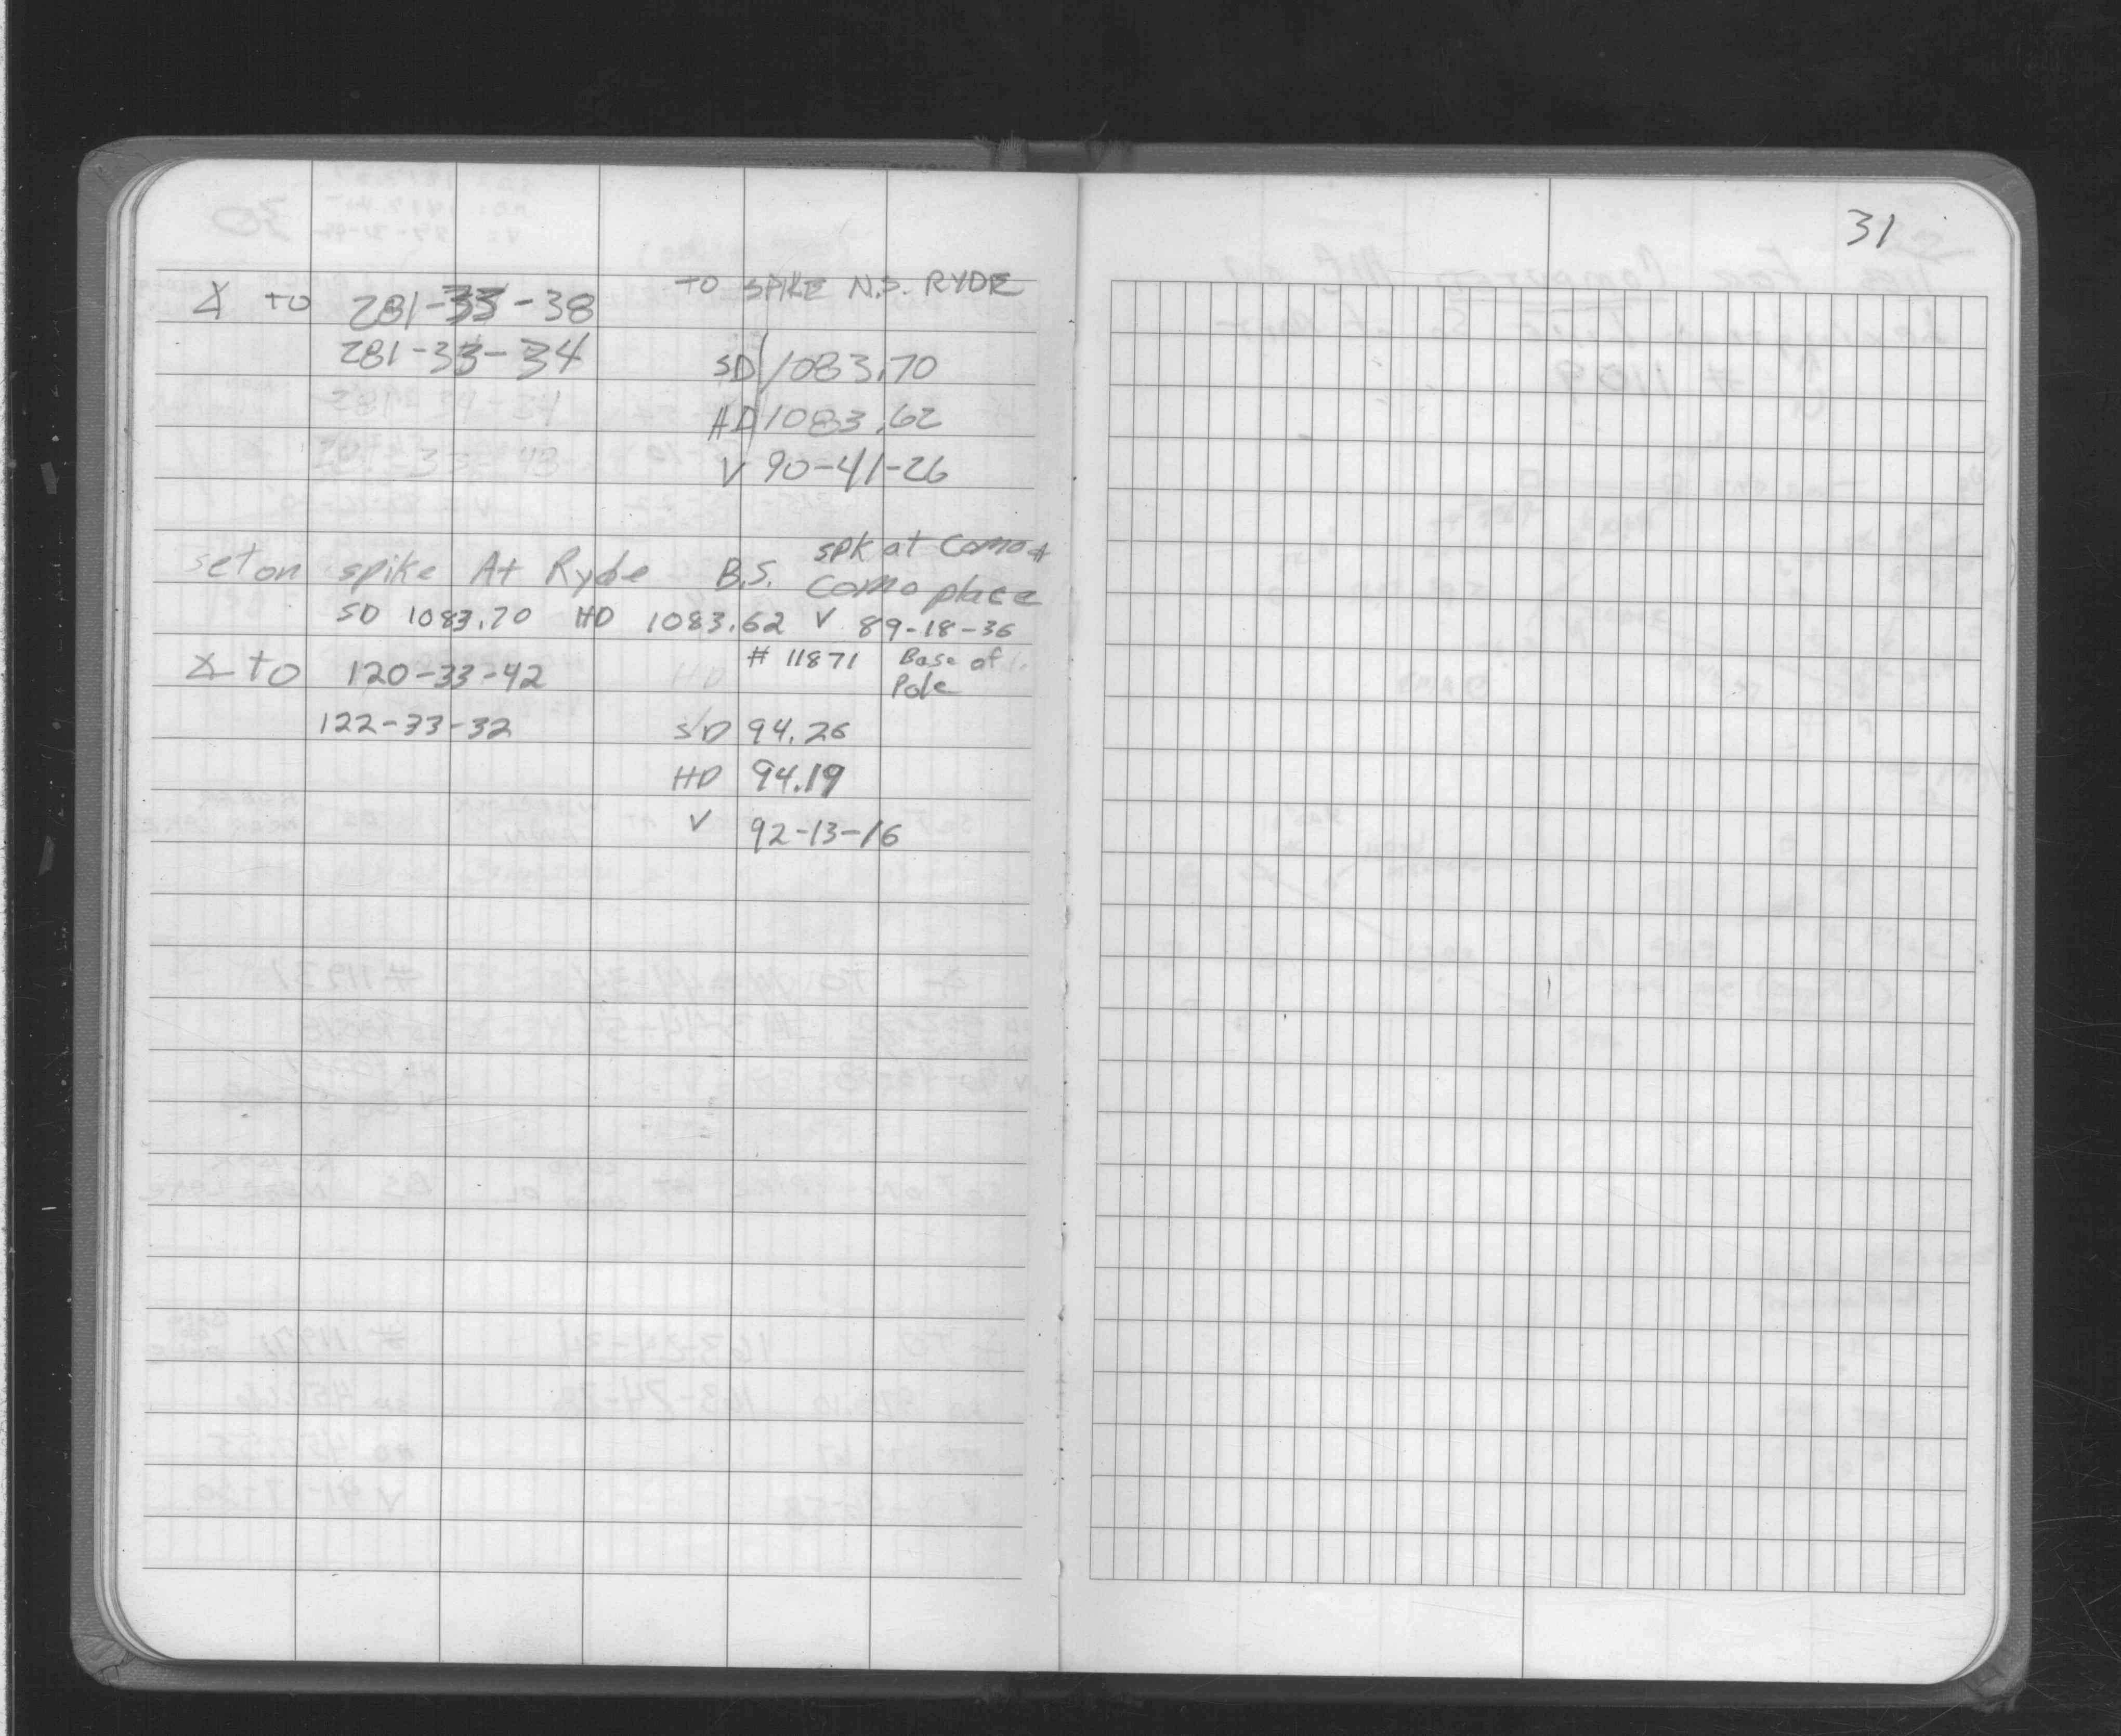 31
∠ TO 281-33-38 TO SPIKE N.S. RYDE
281-33-34 SD 1083.70
HD 1083.62
V 90-41-26
set on spike At Ryde B.S. spk at Como &
Como place
SD 1083.70 HD 1083.62 V 89-18-36
∠ TO 120-33-42 # 11871 Base of
Pole
122-33-32 S/D 94.26
HD 94.19
V 92-13-16